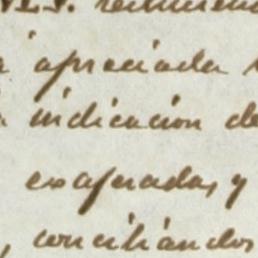 apreciada
indicacion de
exaferadas, y
, conciliándos